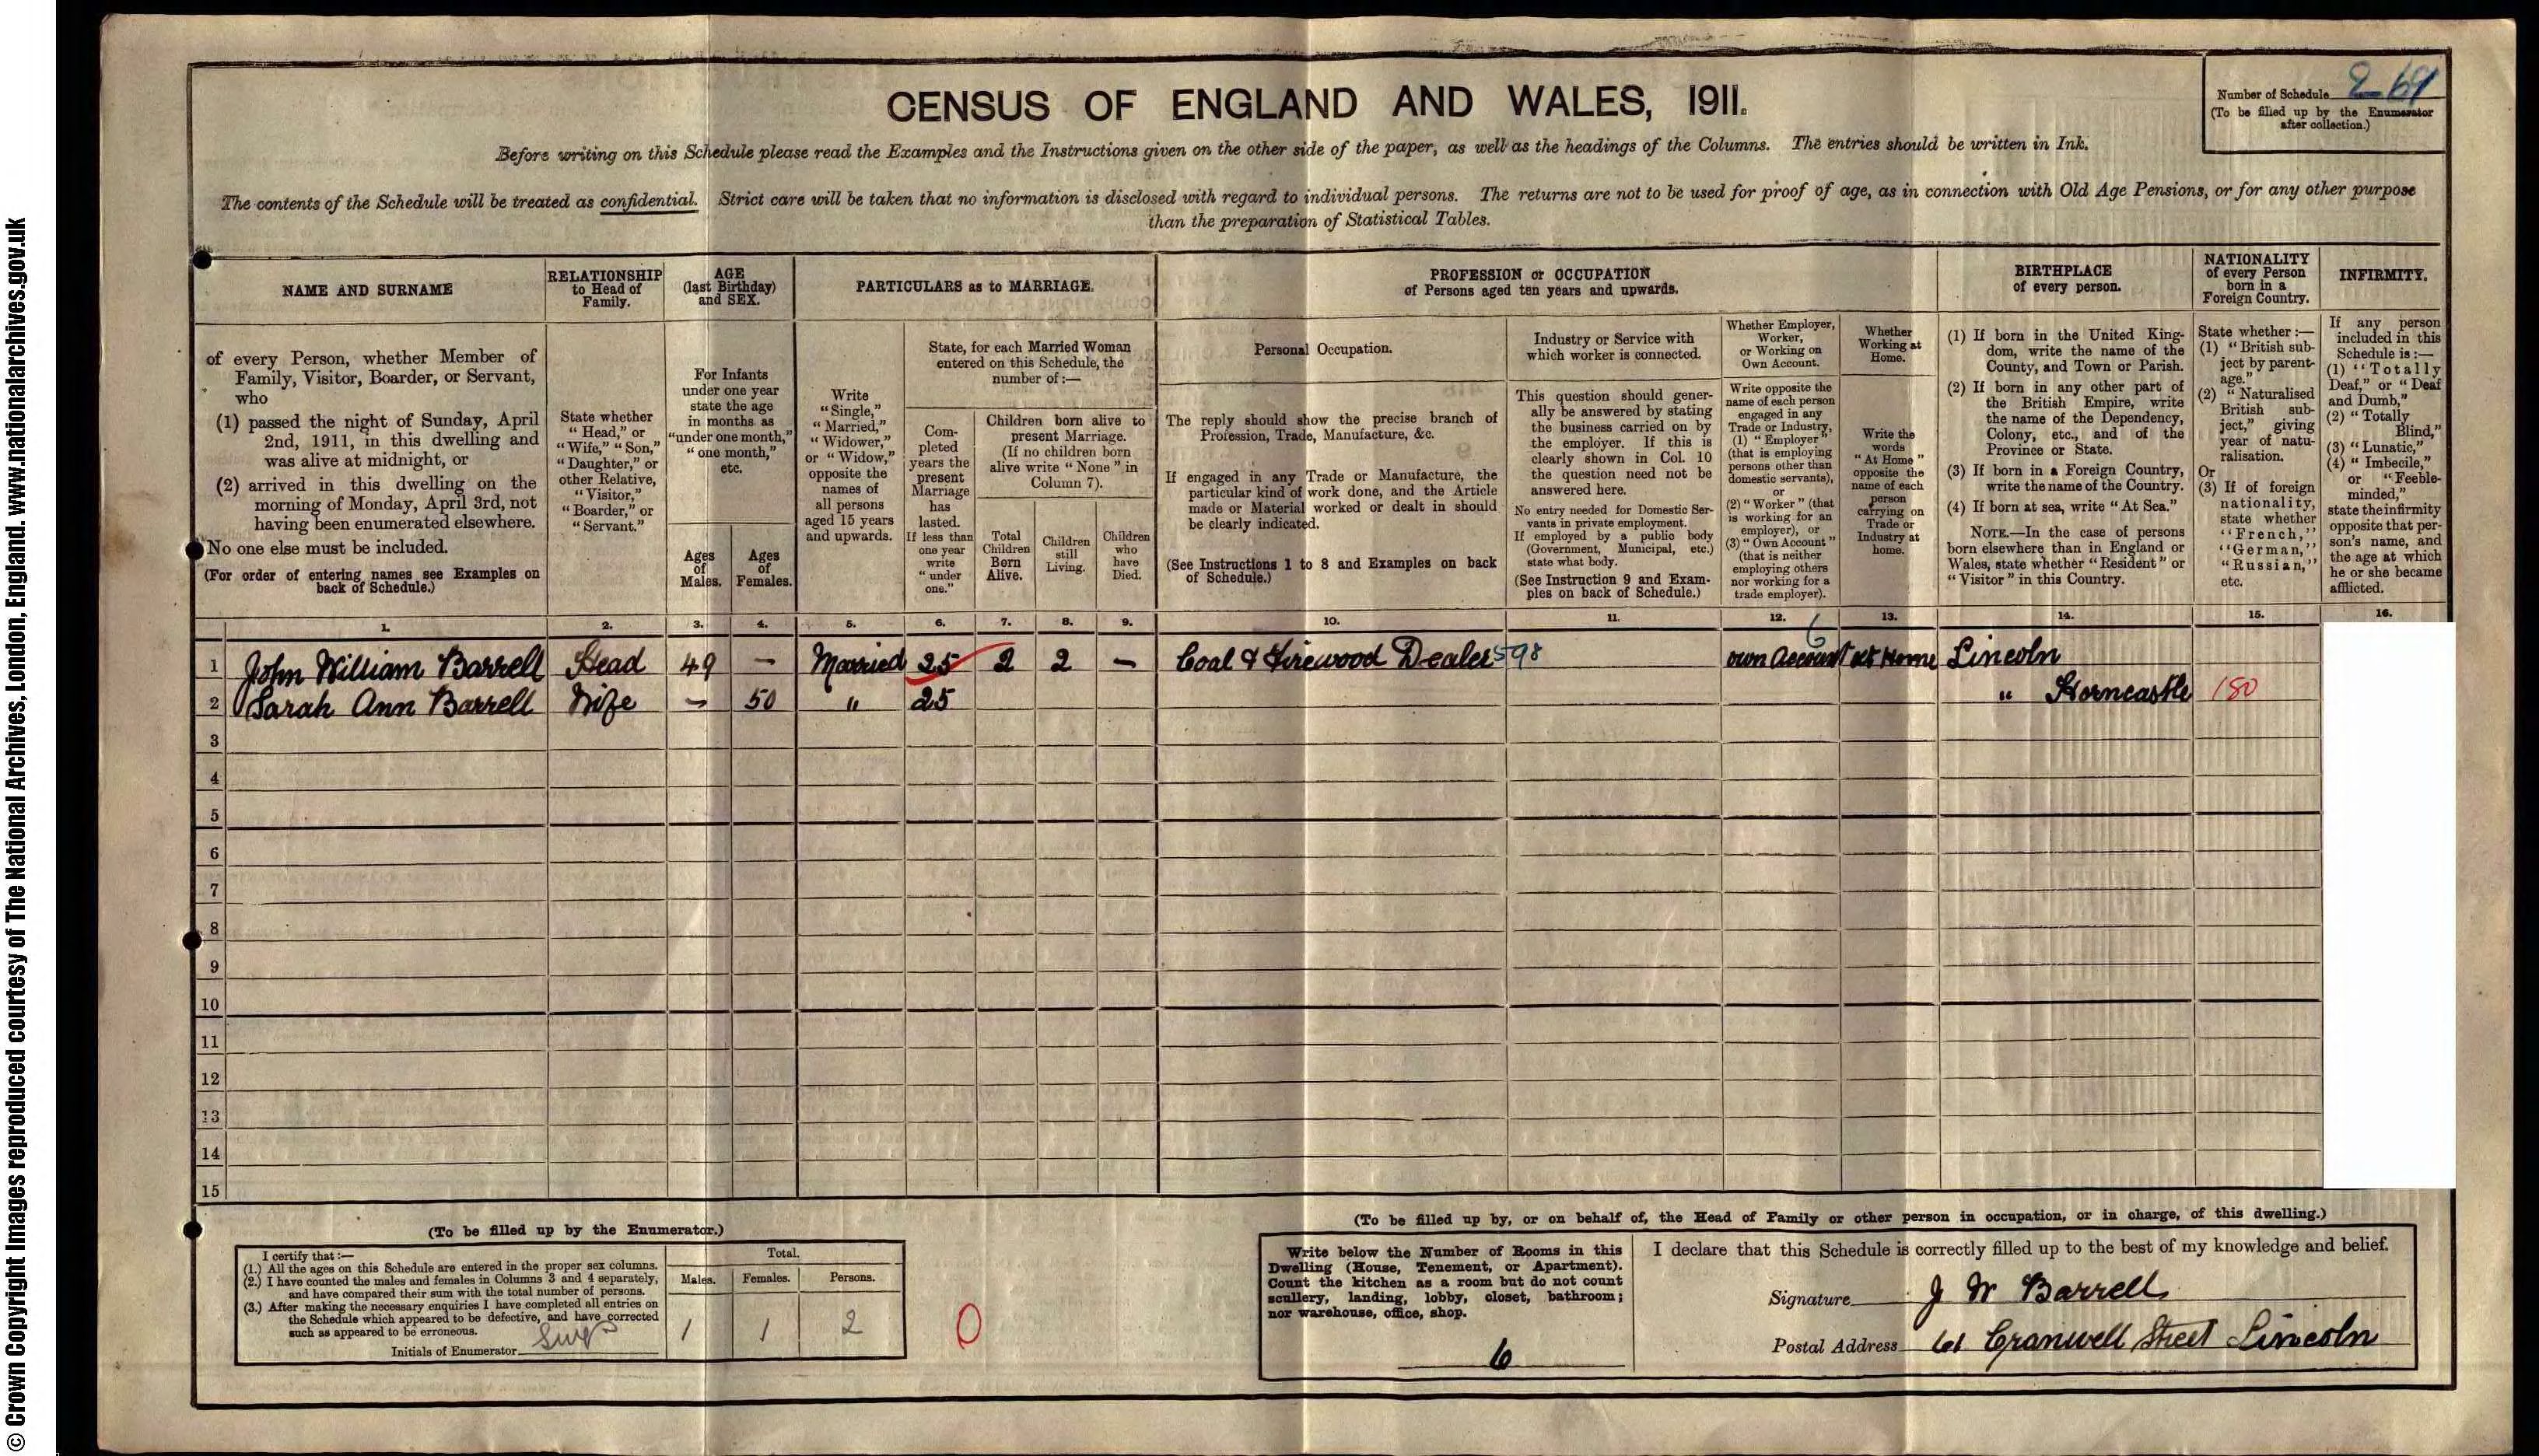 © Crown Copyright Images reproduced courtesy of The National Archives, London, England. www.nationalarchives.gov.uk
CENSUS OF ENGLAND AND WALES, 1911.
Number of Schedule 269
(To be filled up by the Enumerator
after collection.)
Before writing on this Schedule please read the Examples and the Instructions given on the other side of the paper, as well as the headings of the Columns. The entries should be written in Ink.
The contents of the Schedule will be treated as confidential. Strict care will be taken that no information is disclosed with regard to individual persons. The returns are not to be used for proof of age, as in connection with Old Age Pensions, or for any other purpose
than the preparation of Statistical Tables.
NAME AND SURNAME
RELATIONSHIP
to Head of
Family.
AGE
(last Birthday)
and SEX.
PARTICULARS as to MARRIAGE.
PROFESSION or OCCUPATION
of Persons aged ten years and upwards.
BIRTHPLACE
of every person.
NATIONALITY
of every Person
born in a
Foreign Country.
INFIRMITY.
of every Person, whether Member of
Family, Visitor, Boarder, or Servant,
who
(1) passed the night of Sunday, April
2nd, 1911, in this dwelling and
was alive at midnight, or
(2) arrived in this dwelling on the
morning of Monday, April 3rd, not
having been enumerated elsewhere.
No one else must be included.
(For order of entering names see Examples on
back of Schedule.)
State whether
"Head," or
"Wife," "Son,"
"Daughter," or
other Relative,
"Visitor,"
"Boarder," or
"Servant."
For Infants
under one year
state the age
in months as
"under one month,"
"one month,"
etc.
Ages
of
Males.
Ages
of
Females.
Write
"Single,"
"Married,"
"Widower,"
or "Widow,"
opposite the
names of
all persons
aged 15 years
and upwards.
State, for each Married Woman
entered on this Schedule, the
number of :—
Com-
pleted
years the
present
Marriage
has
lasted.
If less than
one year
write
"under
one."
Children born alive to
present Marriage.
(If no children born
alive write "None" in
Column 7).
Total
Children
Born
Alive.
Children
still
Living.
Children
who
have
Died.
Personal Occupation.
The reply should show the precise branch of
Profession, Trade, Manufacture, &c.
If engaged in any Trade or Manufacture, the
particular kind of work done, and the Article
made or Material worked or dealt in should
be clearly indicated.
(See Instructions 1 to 8 and Examples on back
of Schedule.)
Industry or Service with
which worker is connected.
This question should gener-
ally be answered by stating
the business carried on by
the employer. If this is
clearly shown in Col. 10
the question need not be
answered here.
No entry needed for Domestic Ser-
vants in private employment.
If employed by a public body
(Government, Municipal, etc.)
state what body.
(See Instruction 9 and Exam-
ples on back of Schedule.)
Whether Employer,
Worker,
or Working on
Own Account.
Write opposite the
name of each person
engaged in any
Trade or Industry,
(1) "Employer"
(that is employing
persons other than
domestic servants),
or
(2) "Worker" (that
is working for an
employer), or
(3) "Own Account"
(that is neither
employing others
nor working for a
trade employer).
Whether
Working at
Home.
Write the
words
"At Home"
opposite the
name of each
person
carrying on
Trade or
Industry at
home.
(1) If born in the United King-
dom, write the name of the
County, and Town or Parish.
(2) If born in any other part of
the British Empire, write
the name of the Dependency,
Colony, etc., and of the
Province or State.
(3) If born in a Foreign Country,
write the name of the Country.
(4) If born at sea, write "At Sea."
NOTE.—In the case of persons
born elsewhere than in England or
Wales, state whether "Resident" or
"Visitor" in this Country.
State whether :—
(1) "British sub-
ject by parent-
age."
(2) "Naturalised
British sub-
ject," giving
year of natu-
ralisation.
Or
(3) If of foreign
nationality,
state whether
"French,"
"German,"
"Russian,"
etc.
If any person
included in this
Schedule is :—
(1) "Totally
Deaf," or "Deaf
and Dumb,"
(2) "Totally
Blind,"
(3) "Lunatic,"
(4) "Imbecile,"
or "Feeble-
minded,"
state the infirmity
opposite that per-
son's name, and
the age at which
he or she became
afflicted.
1. 2. 3. 4. 5. 6. 7. 8. 9. 10. 11. 12. 13. 14. 15. 16.
1 John William Barrell Head 49 — Married 25 2 2 — Coal & Firewood Dealer 598 own Account 6 at Home Lincoln
2 Sarah Ann Barrell Wife — 50 " 25 " Horncastle 180
3
4
5
6
7
8
9
10
11
12
13
14
15
(To be filled up by the Enumerator.)
I certify that :—
(1.) All the ages on this Schedule are entered in the proper sex columns.
(2.) I have counted the males and females in Columns 3 and 4 separately,
and have compared their sum with the total number of persons.
(3.) After making the necessary enquiries I have completed all entries on
the Schedule which appeared to be defective, and have corrected
such as appeared to be erroneous.
Initials of Enumerator
Total.
Males. Females. Persons.
1 1 2
0
(To be filled up by, or on behalf of, the Head of Family or other person in occupation, or in charge, of this dwelling.)
Write below the Number of Rooms in this
Dwelling (House, Tenement, or Apartment).
Count the kitchen as a room but do not count
scullery, landing, lobby, closet, bathroom;
nor warehouse, office, shop.
6
I declare that this Schedule is correctly filled up to the best of my knowledge and belief.
Signature J W Barrell
Postal Address 61 Cranwell Street Lincoln